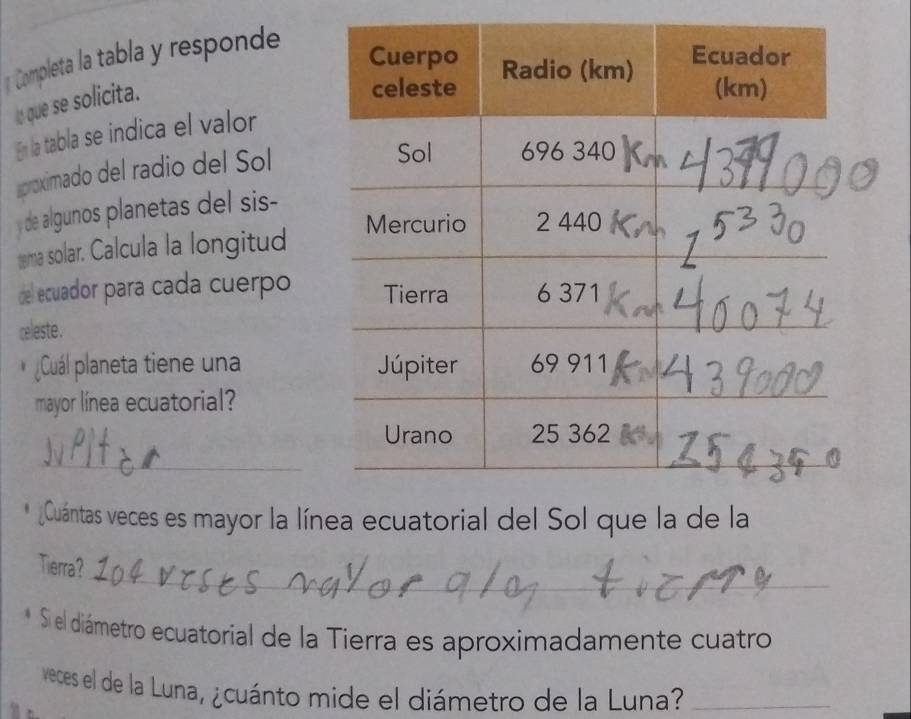 Completa la tabla y responde
lo que se solicita.
En la tabla se indica el valor
aproximado del radio del Sol
y de algunos planetas del sis-
tema solar. Calcula la longitud
del ecuador para cada cuerpo
celeste.
• ¿Cuál planeta tiene una
mayor línea ecuatorial?
JUPIter
Cuerpo celeste Radio (km) Ecuador (km)
Sol 696 340 Km 4379000
Mercurio 2 440 Km 15330
Tierra 6 371 Km 40074
Júpiter 69 911 Km 439000
Urano 25 362 Km
• ¿Cuántas veces es mayor la línea ecuatorial del Sol que la de la
Tierra? 104 veses mayor a la tierra
• Si el diámetro ecuatorial de la Tierra es aproximadamente cuatro
veces el de la Luna, ¿cuánto mide el diámetro de la Luna?